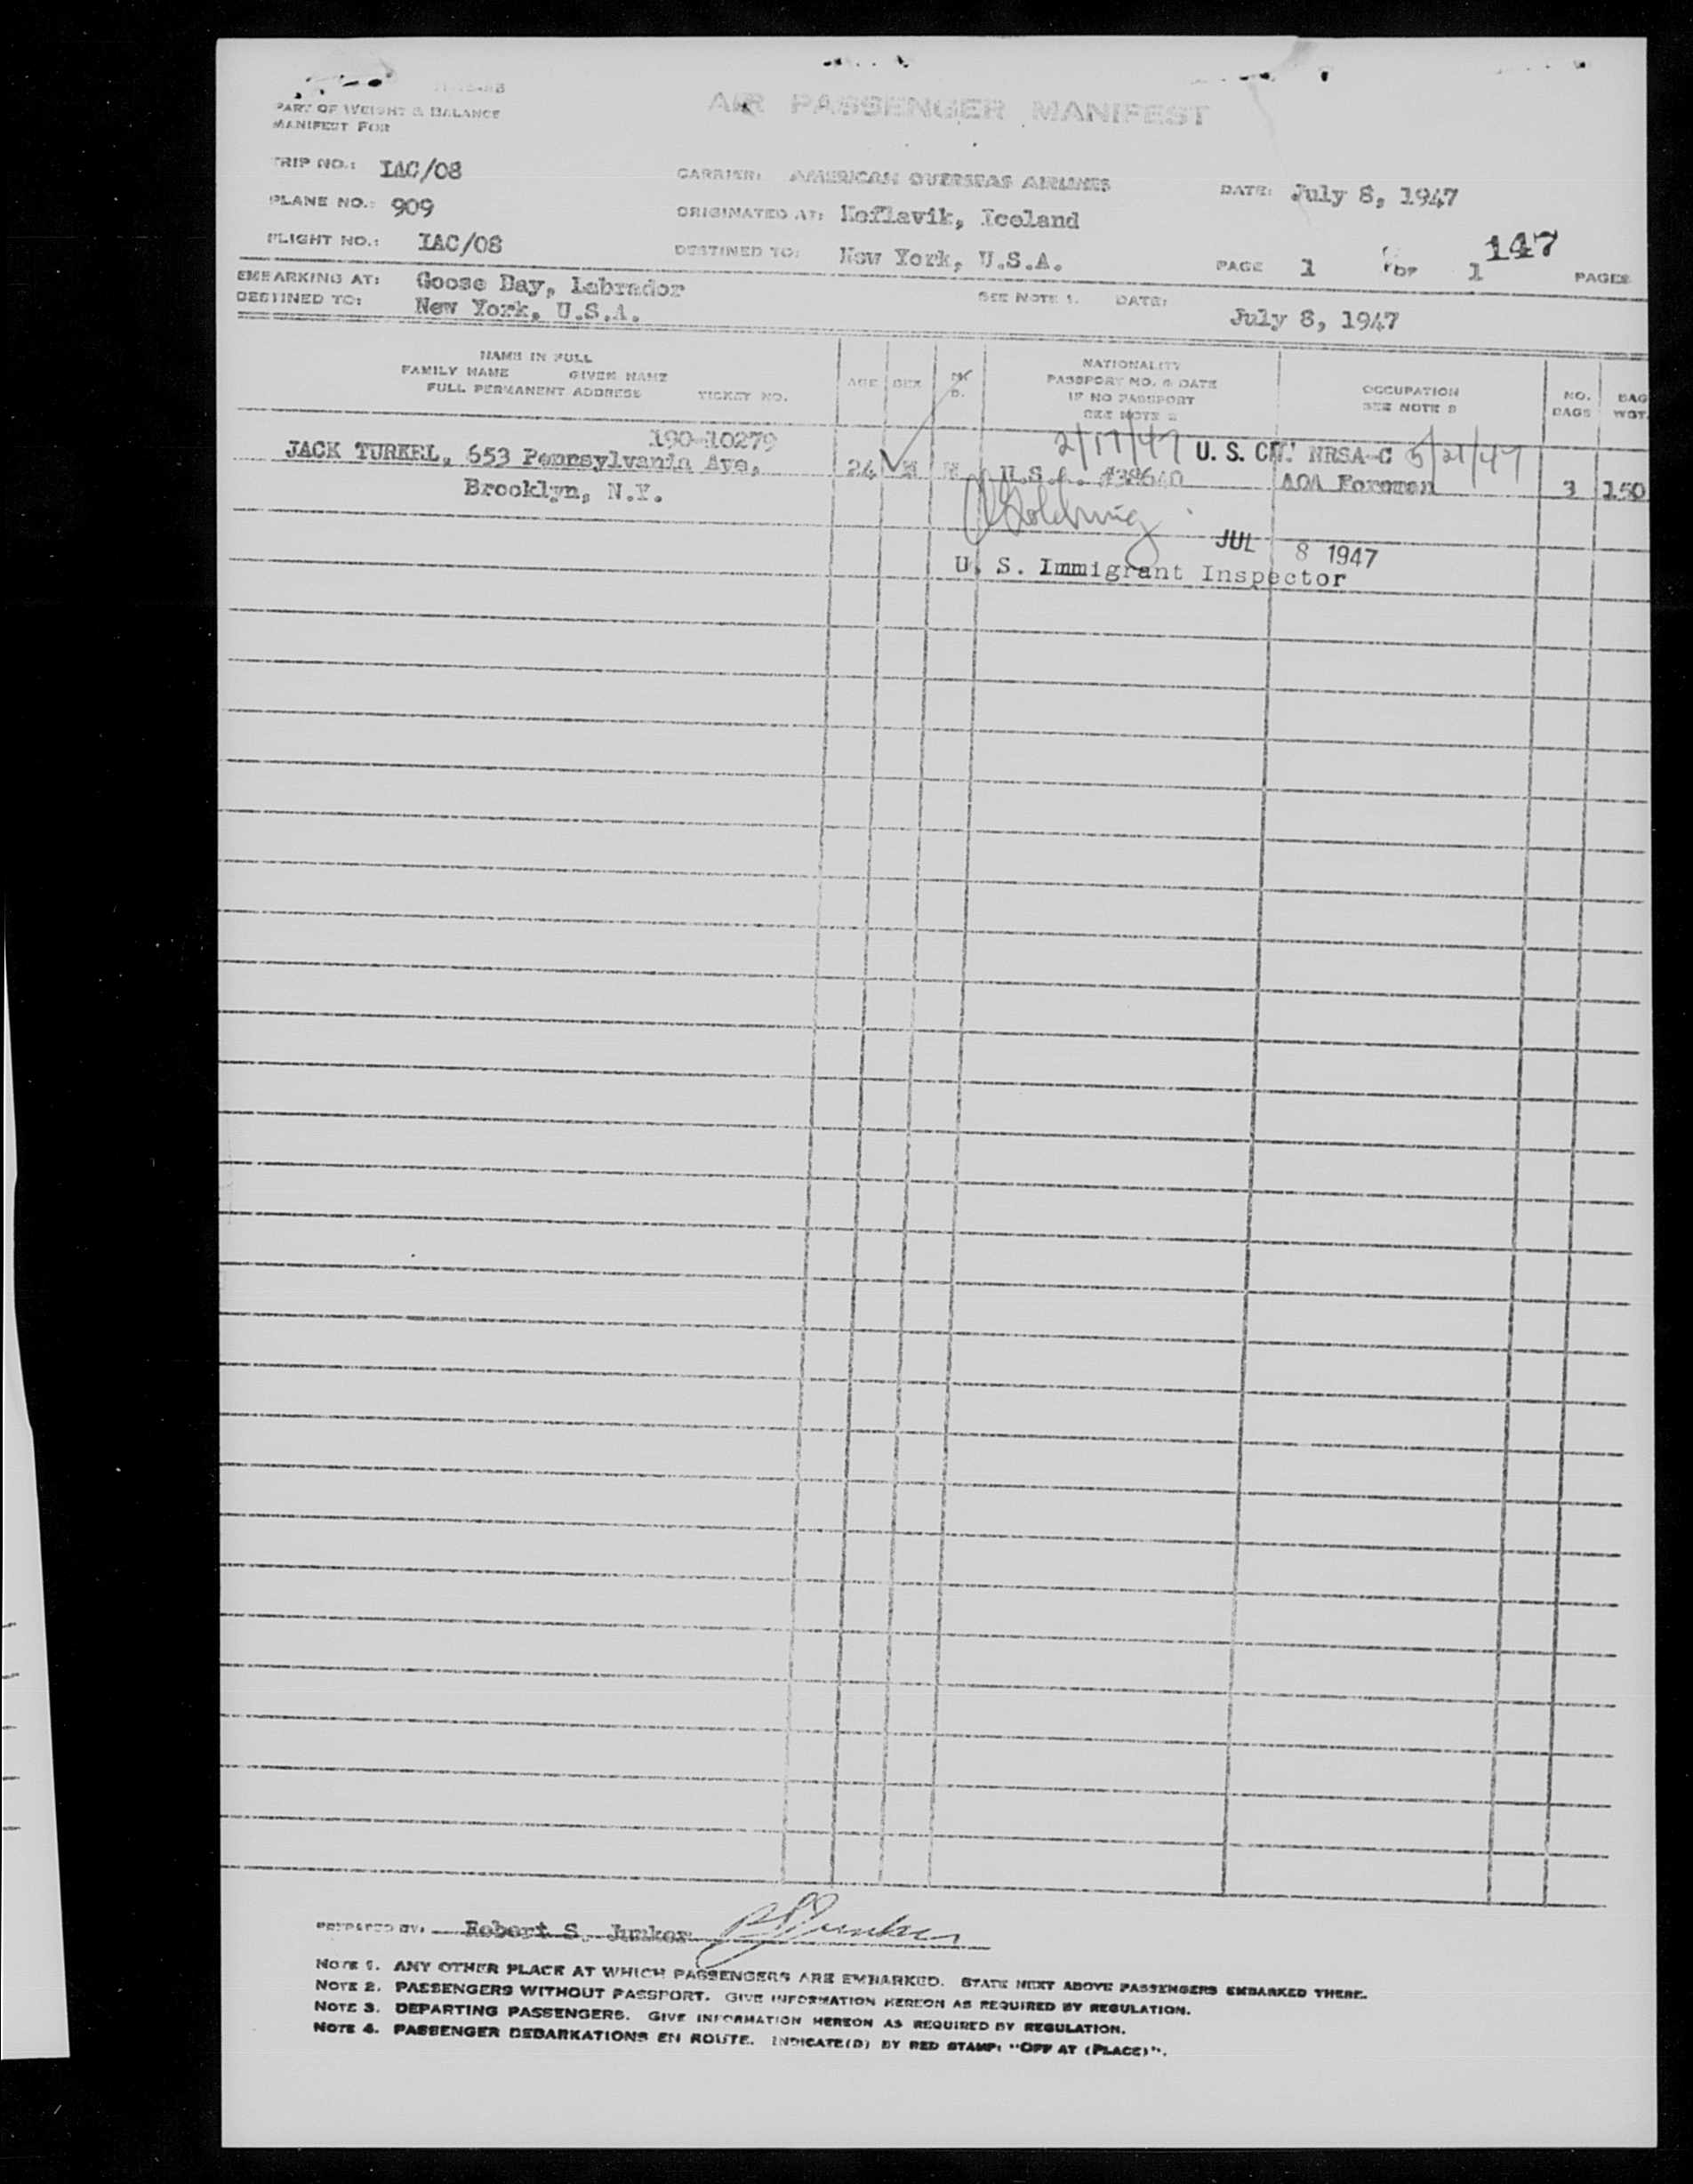 PART OF WEIGHT & BALANCE
MANIFEST FOR
AIR PASSENGER MANIFEST
TRIP NO.: IAC/08
CARRIER: AMERICAN OVERSEAS AIRLINES
DATE: July 8, 1947
PLANE NO.: 909
ORIGINATED AT: Keflavik, Iceland
FLIGHT NO.: IAC/08
DESTINED TO: New York, U.S.A.
PAGE 1 OF 1 PAGES
147
EMBARKING AT: Goose Bay, Labrador
DESTINED TO: New York, U.S.A.
SEE NOTE 1. DATE: July 8, 1947
NAME IN FULL
FAMILY NAME GIVEN NAME
FULL PERMANENT ADDRESS TICKET NO.
AGE SEX
NATIONALITY
PASSPORT NO. & DATE
IF NO PASSPORT
SEE NOTE 2
OCCUPATION
SEE NOTE 3
NO. BAGS
BAG WGT.
190-10279
2/17/47 U. S. CIT. NRSA-C 5/21/47
JACK TURKEL, 653 Pennsylvania Ave, 24 M M U.S.A. #38640 AOA Foreman 3 150
Brooklyn, N.Y.
JUL 8 1947
U. S. Immigrant Inspector
PREPARED BY: Robert S. Junker RSJunker
NOTE 1. ANY OTHER PLACE AT WHICH PASSENGERS ARE EMBARKED. STATE NEXT ABOVE PASSENGERS EMBARKED THERE.
NOTE 2. PASSENGERS WITHOUT PASSPORT. GIVE INFORMATION HEREON AS REQUIRED BY REGULATION.
NOTE 3. DEPARTING PASSENGERS. GIVE INFORMATION HEREON AS REQUIRED BY REGULATION.
NOTE 4. PASSENGER DEBARKATIONS EN ROUTE. INDICATE(D) BY RED STAMP: "OFF AT (PLACE)".